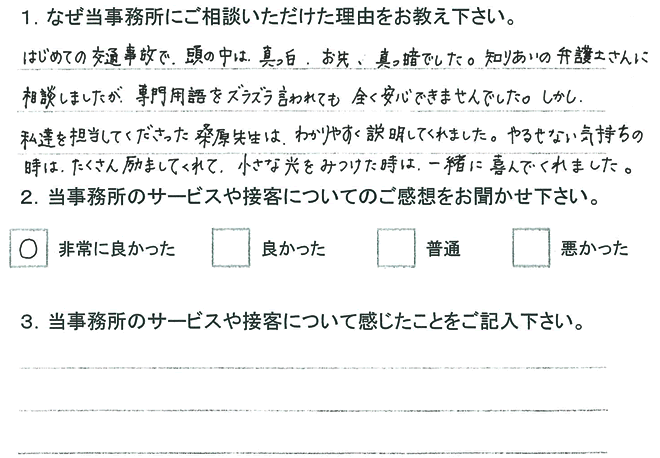 1．なぜ当事務所にご相談いただけた理由をお教え下さい。
はじめての交通事故で、頭の中は、真っ白、お先、真っ暗でした。知りあいの弁護士さんに
相談しましたが、専門用語をズラズラ言われても 全く安心できませんでした。しかし、
私達を担当してくださった桑原先生は、わかりやすく説明してくれました。やるせない気持ちの
時は、たくさん励ましてくれて、小さな光をみつけた時は、一緒に喜んでくれました。
2．当事務所のサービスや接客についてのご感想をお聞かせ下さい。
○ 非常に良かった 良かった 普通 悪かった
3．当事務所のサービスや接客について感じたことをご記入下さい。